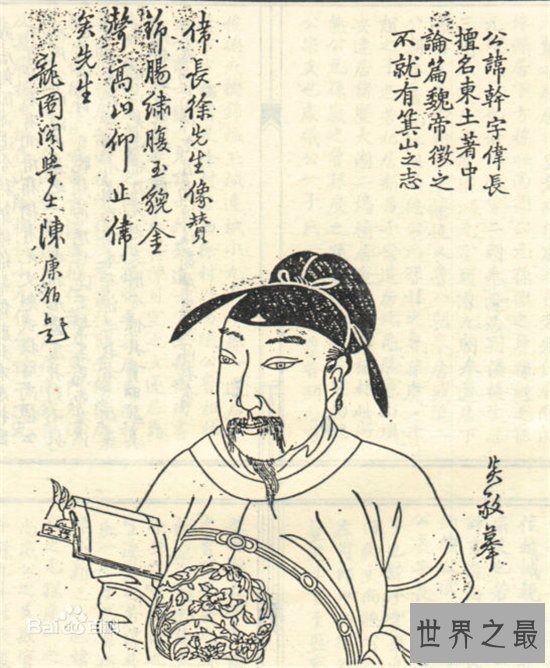 公諱幹字偉長
擅名東土著中
論篇魏帝徵之
不就有箕山之志
偉長徐先生像贊
錦腸繡腹玉貌金
聲高山仰止偉
矣先生
龍圖閣學士陳康伯題
敬摹
Bai百科
世界之最